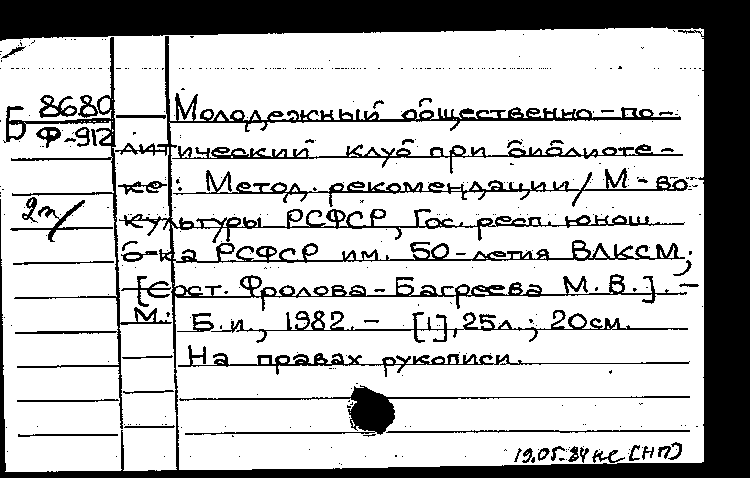 Б 8680
Ф-912
2л/
Молодежный общественно-по-
литический клуб при библиоте-
ке: Метод. рекомендации/ М-во
культуры РСФСР, Гос. респ. юнош.
б-ка РСФСР им. 50-летия ВЛКСМ;
[Сост. Фролова-Багреева М.В.]. -
М.: Б.и., 1982. - [1], 25л.; 20см.
На правах рукописи.
19.05.84 [НП]